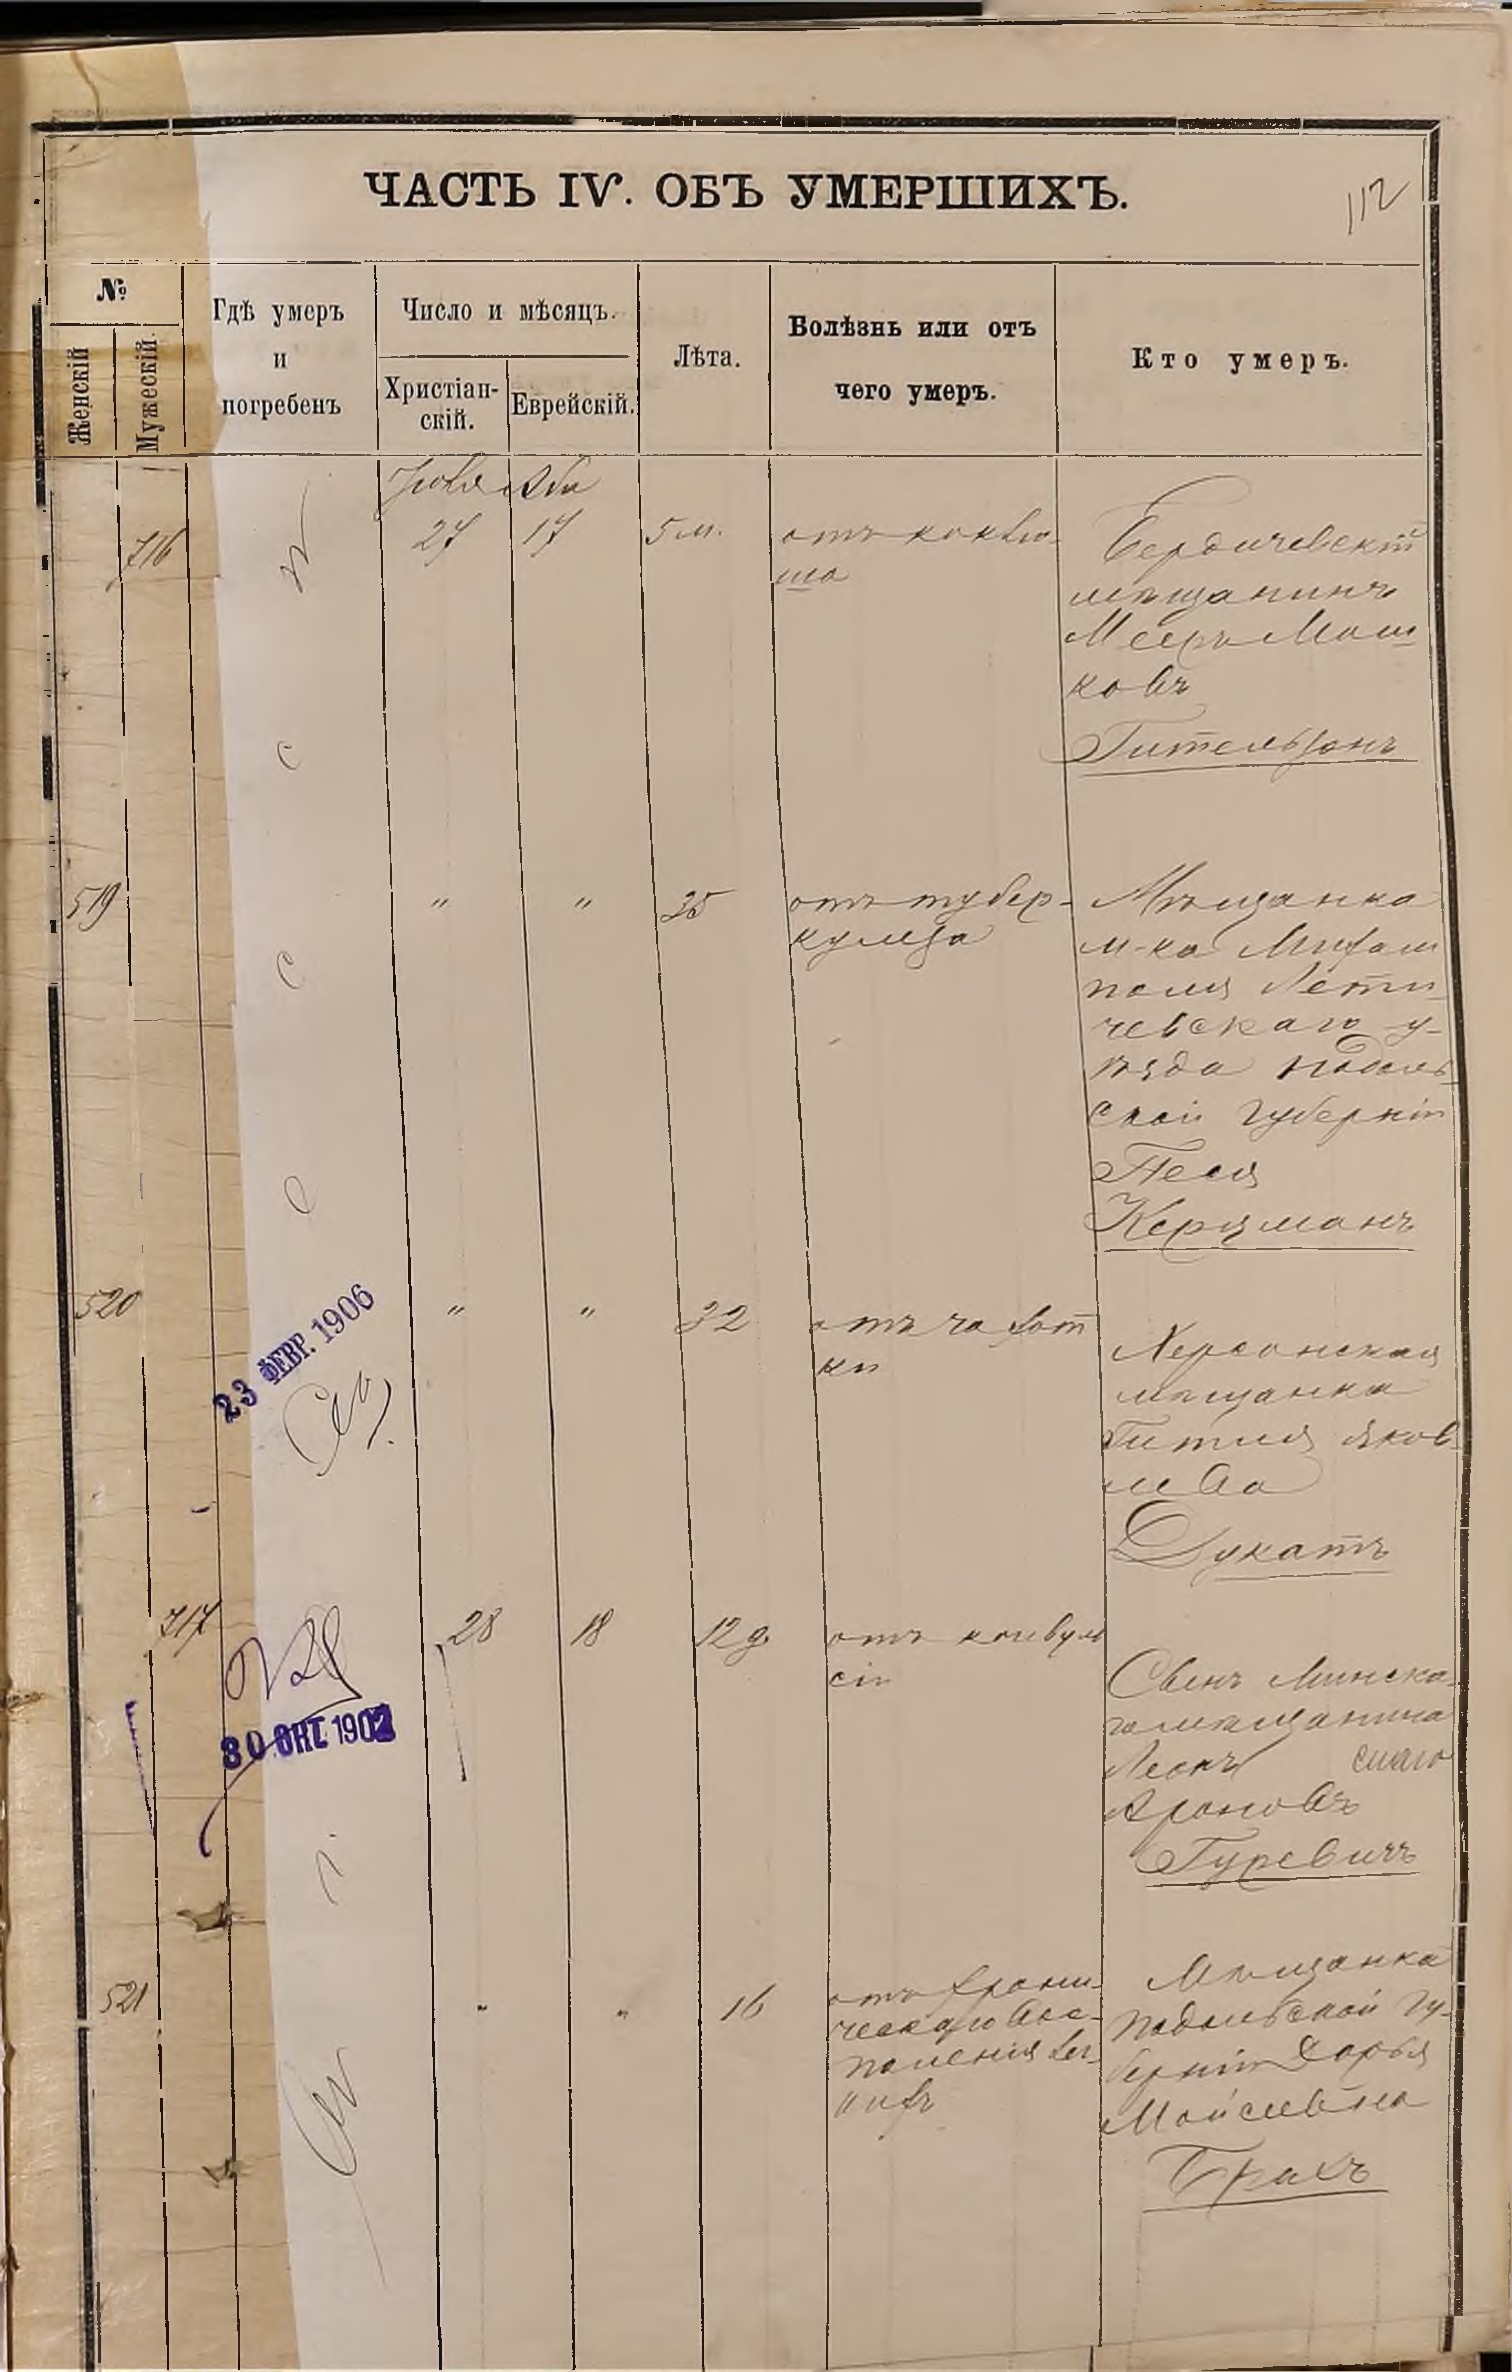 ЧАСТЬ IV. ОБЪ УМЕРШИХЪ.
112
№
Женскій
Мужескій.
Гдѣ умеръ
и
погребенъ
Число и мѣсяцъ.
Христіан-
скій.
Еврейскій.
Лѣта.
Болѣзнь или отъ
чего умеръ.
Кто умеръ.
Іюля Аба
716
27
17
5 м.
отъ коклю-
ша
Бердичевскій
мѣщанинъ
Мееръ Мош
ковъ
Гительзонъ
519
"
"
35
отъ тубер-
кулеза
Мѣщанка
м-ка Михам
поля Лети
чевскаго у-
ѣзда Подоль
ской губерніи
Песя
Керцманъ
520
"
"
32
отъ чахот
ки
Херсонская
мѣщанка
Гитля Яков
лева
Дукатъ
23 ФЕВР. 1906
717
28
18
12 д.
отъ конвуль
сіи
Сынъ Минска-
го мѣщанина
Леонъ
Ароновъ
Гуревичъ
30 ОКТ. 1902
521
"
"
16
отъ хрони-
ческаго вос-
паленія лег-
кихъ
Мѣщанка
Подольской гу-
берніи Дарья
Мойсеевна
Брахъ